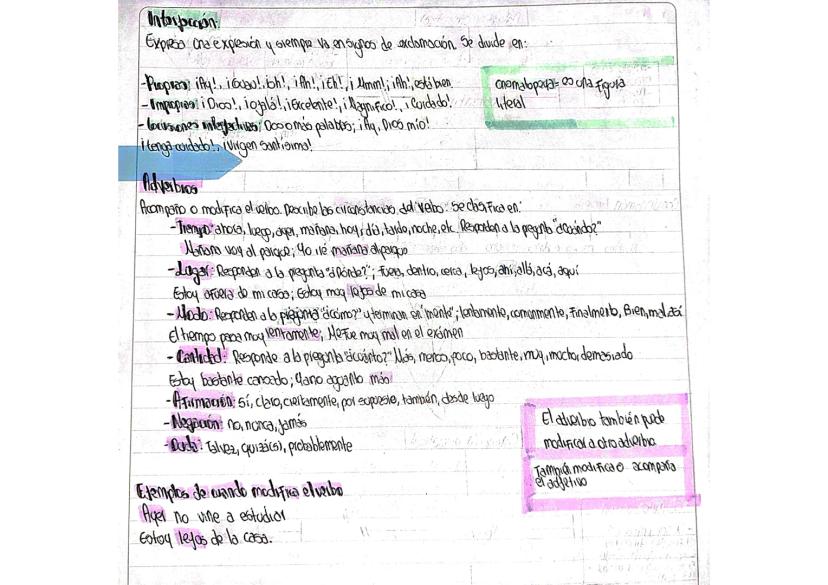 Interjección:
Expresa una expresión y siempre va en signos de exclamación. Se divide en:
-Propias: ¡Ay!, ¡Guao!, ¡oh!, ¡Ah!, ¡Eh!, ¡Mmm!; ¡Ah!, está bien.
-Impropias: ¡Dios!, ¡ojalá!, ¡Excelente!, ¡Magnífico!, ¡Cuidado!.
-Locuciones interjectivas: Dos o más palabras; ¡Ay, Dios mío!
¡Tenga cuidado!, ¡Virgen santísima!
onomatopeya= es una figura
literal
Adverbios
Acompaña o modifica el verbo. Describe las circunstancias del verbo. Se clasifica en:
-Tiempo: ahora, luego, ayer, mañana, hoy, día, tarde, noche, etc. Responden a la pregunta "¿cuándo?"
Mañana voy al parque; Yo iré mañana al parque
-Lugar: Responden a la pregunta "¿Dónde?"; Fuera, dentro, cerca, lejos, ahí, allá, acá, aquí
Estoy afuera de mi casa; Estoy muy lejos de mi casa
-Modo: Responden a la pregunta "¿cómo?" y terminan en "mente"; lentamente, comunmente, Finalmente, Bien, mal, así
El tiempo pasa muy lentamente; Me fue muy mal en el exámen
-Cantidad: Responde a la pregunta "¿cuánto?" Más, menos, poco, bastante, muy, mucho, demasiado
Estoy bastante cansado; Ya no aguanto más
-Afirmación: Sí, claro, ciertamente, por supuesto, también, desde luego
-Negación: no, nunca, jamás
-Duda: Talvez, quizá(s), probablemente
El adverbio también puede
modificar a otro adverbio
También modifica o acompaña
el adjetivo
Ejemplos de cuando modifica el verbo
Ayer no vine a estudiar
Estoy lejos de la casa.